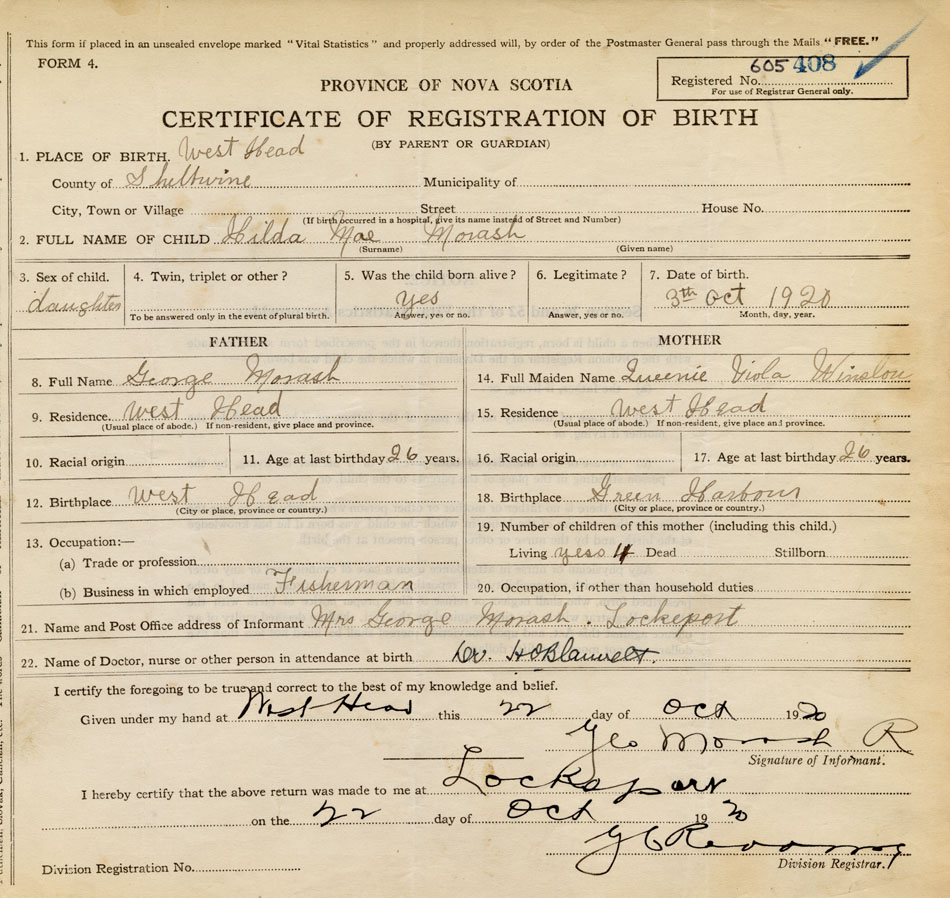 This form if placed in an unsealed envelope marked "Vital Statistics" and properly addressed will, by order of the Postmaster General pass through the Mails "FREE."
FORM 4.
605 408
Registered No.
For use of Registrar General only.
PROVINCE OF NOVA SCOTIA
CERTIFICATE OF REGISTRATION OF BIRTH
(BY PARENT OR GUARDIAN)
1. PLACE OF BIRTH. West Head
County of Shelbwine Municipality of
City, Town or Village Street House No.
(If birth occurred in a hospital, give its name instead of Street and Number)
2. FULL NAME OF CHILD Hilda Mae Morash
(Surname) (Given name)
3. Sex of child. 4. Twin, triplet or other? 5. Was the child born alive? 6. Legitimate? 7. Date of birth.
daughter yes 3th oct 1920
To be answered only in the event of plural birth. Answer, yes or no. Answer, yes or no. Month, day, year.
FATHER MOTHER
8. Full Name George Morash 14. Full Maiden Name Queenie Viola Winslou
9. Residence. West Head 15. Residence West Head
(Usual place of abode.) If non-resident, give place and province. (Usual place of abode.) If non-resident, give place and province.
10. Racial origin 11. Age at last birthday 26 years. 16. Racial origin 17. Age at last birthday 26 years.
12. Birthplace West Head 18. Birthplace Green Harbour
(City or place, province or country.) (City or place, province or country.)
13. Occupation:— 19. Number of children of this mother (including this child.)
(a) Trade or profession Living yess 4 Dead Stillborn
(b) Business in which employed Fisherman 20. Occupation, if other than household duties
21. Name and Post Office address of Informant Mrs George Morash. Lockeport
22. Name of Doctor, nurse or other person in attendance at birth Dr. H O Blauvelt.
I certify the foregoing to be true and correct to the best of my knowledge and belief.
Given under my hand at West Head this 22 day of Oct 1920
Geo Morash R
Signature of Informant.
I hereby certify that the above return was made to me at Lockeport
on the 22 day of Oct 1920
Division Registration No. Division Registrar.